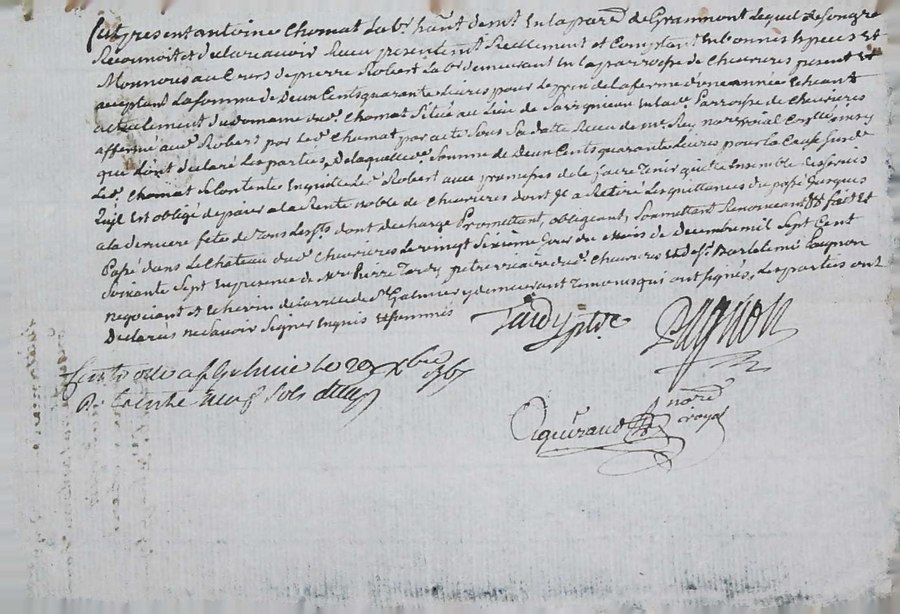 fut present antoine Chomat Labr. hant demt en la pare de Grammont Lequel de Son gré
Reconnoit et declare avoir Reçu presentemt Reellement et Comptant En bonnes Especes et
Monnoies au Cours de pierre Robert Labr demeurant En la parroisse de Chevrieres present et
acceptant La somme de Deux Cents quarante Livres pour le prix de la ferme d'une année Echeant
actuelement du domaine dud. Chomat Situé au Lieu de Savignieu En lad. Parroisse de Chevrieres
affermé aud. Robert par led. Chomat par acte Sous Sa datte Recu de me Rey nore roial
que l'ont déclaré Les parties, De laquelle d. Somme de Deux Cents quarante Livres pour la Cause Susd.
led. Chomat Se Contente En quitte led. Robert avec promesses de le faire Tenir quitte Ensemble des frais
Qu'il Est obligé de paier a la Rente noble de Chevrieres dont Il a Retiré Les quittances du passé Jusques
a la derniere fête de tous Les sts dont decharge Promettant, obligeant, Soumettant Renonceant &c fait Et
Passé dans Le Chateau dud. Chevrieres Le vingt Sixieme Jour du Mois de Decembre mil Sept Cent
Soixante Sept En presence de Mre Pierre Tardy pretre vicaire dud. Chevrieres Et de Sr. Bartelemi Pagnon
negociant et Echevin de la ville de St Galmier y demeurant temoins qui ont Signés, Les parties ont
Declarés ne Savoir Signer Enquis Et Sommés
Tardy ptre
Pagnon
Controllé a St Galmier Le 29 xbre 1767
R. trente neuf Sols
nore
royal